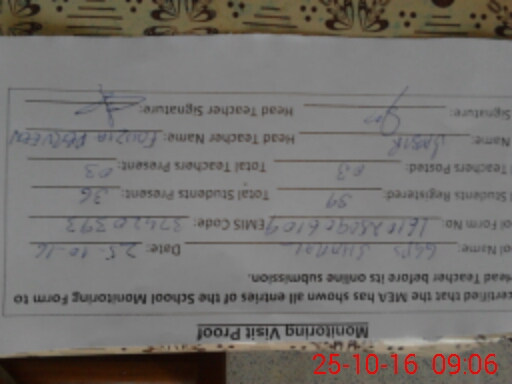 Monitoring Visit Proof
certified that the MEA has shown all entries of the School Monitoring Form to
Head Teacher before its online submission.
ol Name: GGPS SHUMAL Date: 25-10-16
ol Form No EMIS Code: 37420393
l Students Registered: 39 Total Students Present: 36
l Teachers Posted: 03 Total Teachers Present: 03
Name: SABIR Head Teacher Name: FOUZIA PERVEEN
Signature: Head Teacher Signature:
25-10-16 09:06